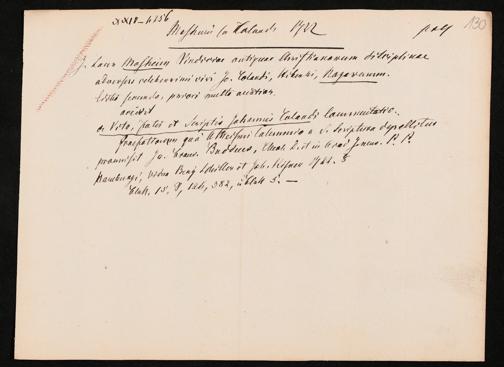 XXIV-4156
130
Mosheim ca Tolandi 1722
J. Laur Mosheim Vindiciae antiquae Christianorum disciplinae
adversus celeberrimi viri Jo. Tolandi, Hiberni, Nazarenum.
Editio secunda, priori multo auctior.
accedit
de Vita, fatis et Scriptis Johannis Tolandi Commentatio.
praefationem qua Atheismi calumnia a S. Scriptura depellitur
praemisit Jo. Franc. Buddeus,
Hamburgi, Benj. Schilleri et Joh. Kisner 1722. 8